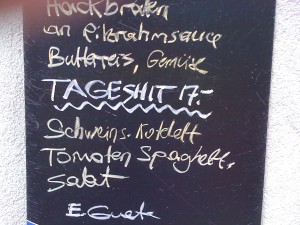 Hackbraten
an Pikrahmsauce
Butterreis, Gemüse
TAGESHIT 17.-
Schweins-Kotelett
Tomaten Spaghetti,
Salat
E Guete